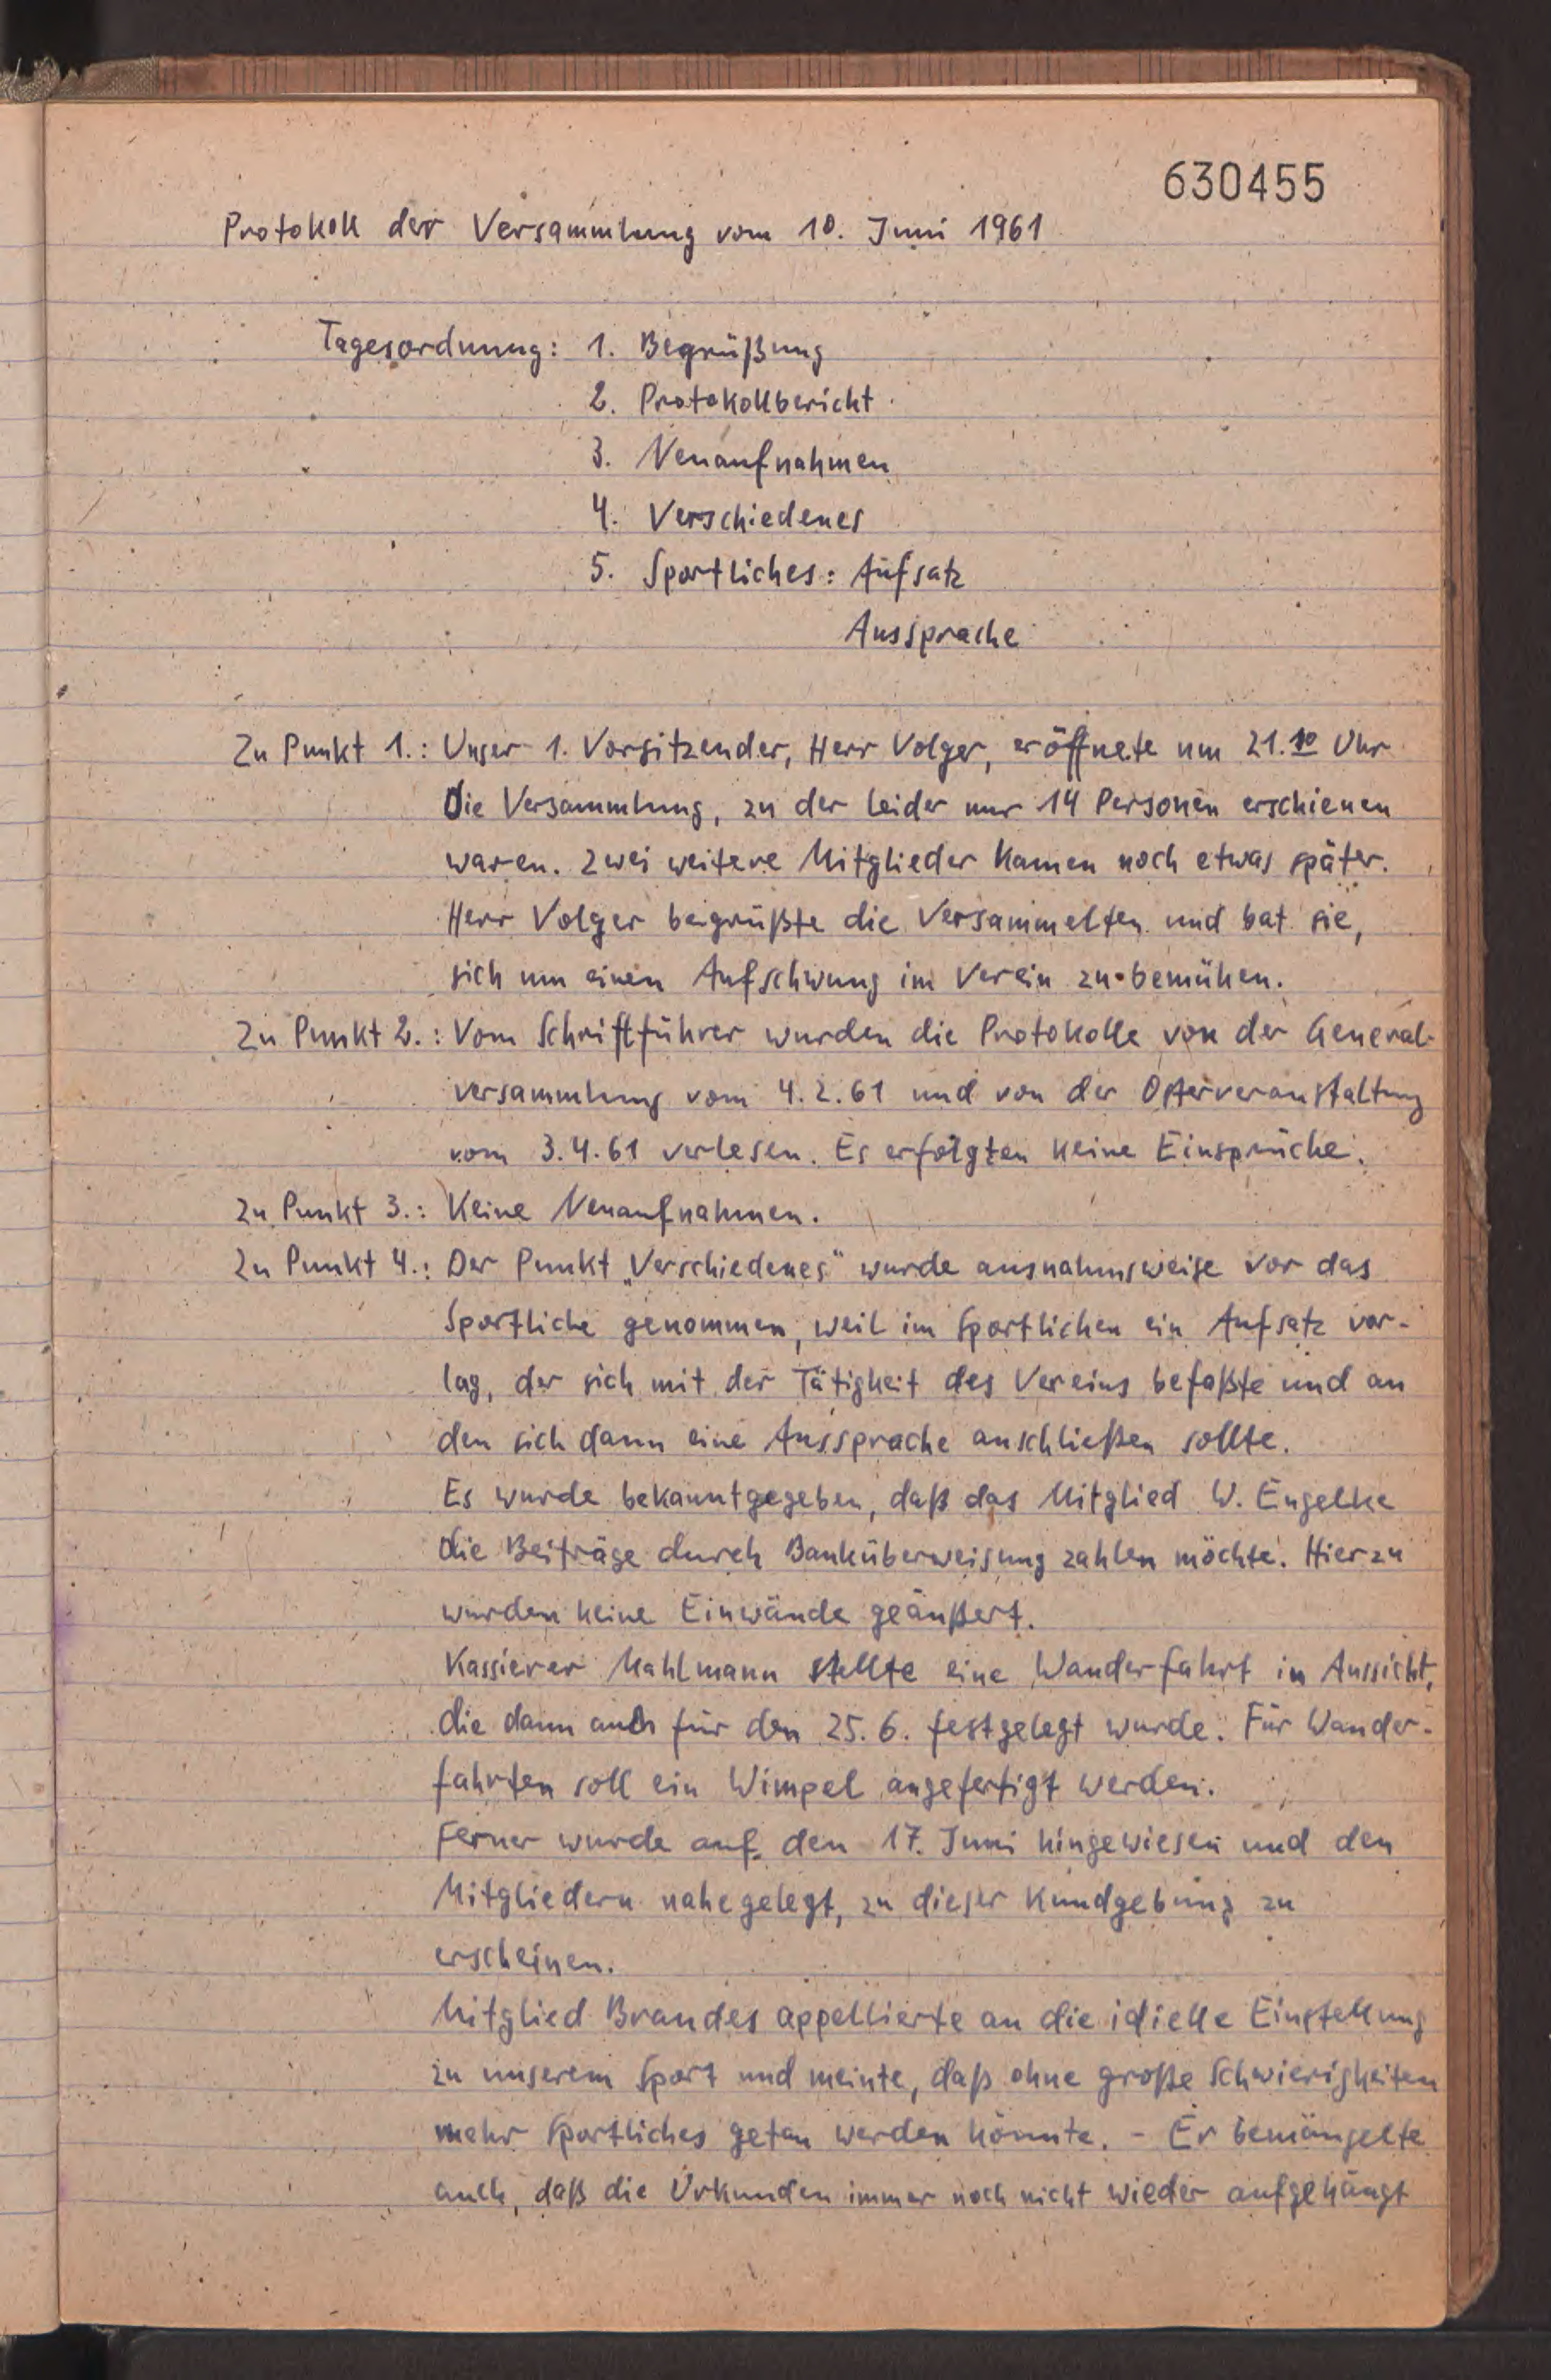 630455
Protokoll der Versammlung vom 10. Juni 1961
Tagesordnung: 1. Begrüßung
2. Protokollbericht
3. Neuaufnahmen
4. Verschiedenes
5. Sportliches: Aufsatz
Aussprache
Zu Punkt 1.: Unser 1. Vorsitzender, Herr Volger, eröffnete um 21.10 Uhr
die Versammlung, zu der leider nur 14 Personen erschienen
waren. Zwei weitere Mitglieder kamen noch etwas später.
Herr Volger begrüßte die Versammelten und bat sie,
sich um einen Aufschwung im Verein zu bemühen.
Zu Punkt 2.: Vom Schriftführer wurden die Protokolle von der General-
versammlung vom 4.2.61 und von der Osterveranstaltung
vom 3.4.61 verlesen. Es erfolgten keine Einsprüche.
Zu Punkt 3.: Keine Neuaufnahmen.
Zu Punkt 4.: Der Punkt „Verschiedenes" wurde ausnahmsweise vor das
Sportliche genommen, weil im Sportlichen ein Aufsatz vor-
lag, der sich mit der Tätigkeit des Vereins befaßte und an
den sich dann eine Aussprache anschließen sollte.
Es wurde bekanntgegeben, daß das Mitglied W. Engelke
die Beiträge durch Banküberweisung zahlen möchte. Hierzu
wurden keine Einwände geäußert.
Kassierer Mahlmann stellte eine Wanderfahrt in Aussicht,
die dann auch für den 25.6. festgelegt wurde. Für Wander-
fahrten soll ein Wimpel angefertigt werden.
Ferner wurde auf den 17. Juni hingewiesen und den
Mitgliedern nahegelegt, zu dieser Kundgebung zu
erscheinen.
Mitglied Brandes appellierte an die idielle Einstellung
zu unserem Sport und meinte, daß ohne große Schwierigkeiten
mehr Sportliches getan werden könnte. - Er bemängelte
auch, daß die Urkunden immer noch nicht wieder aufgehängt